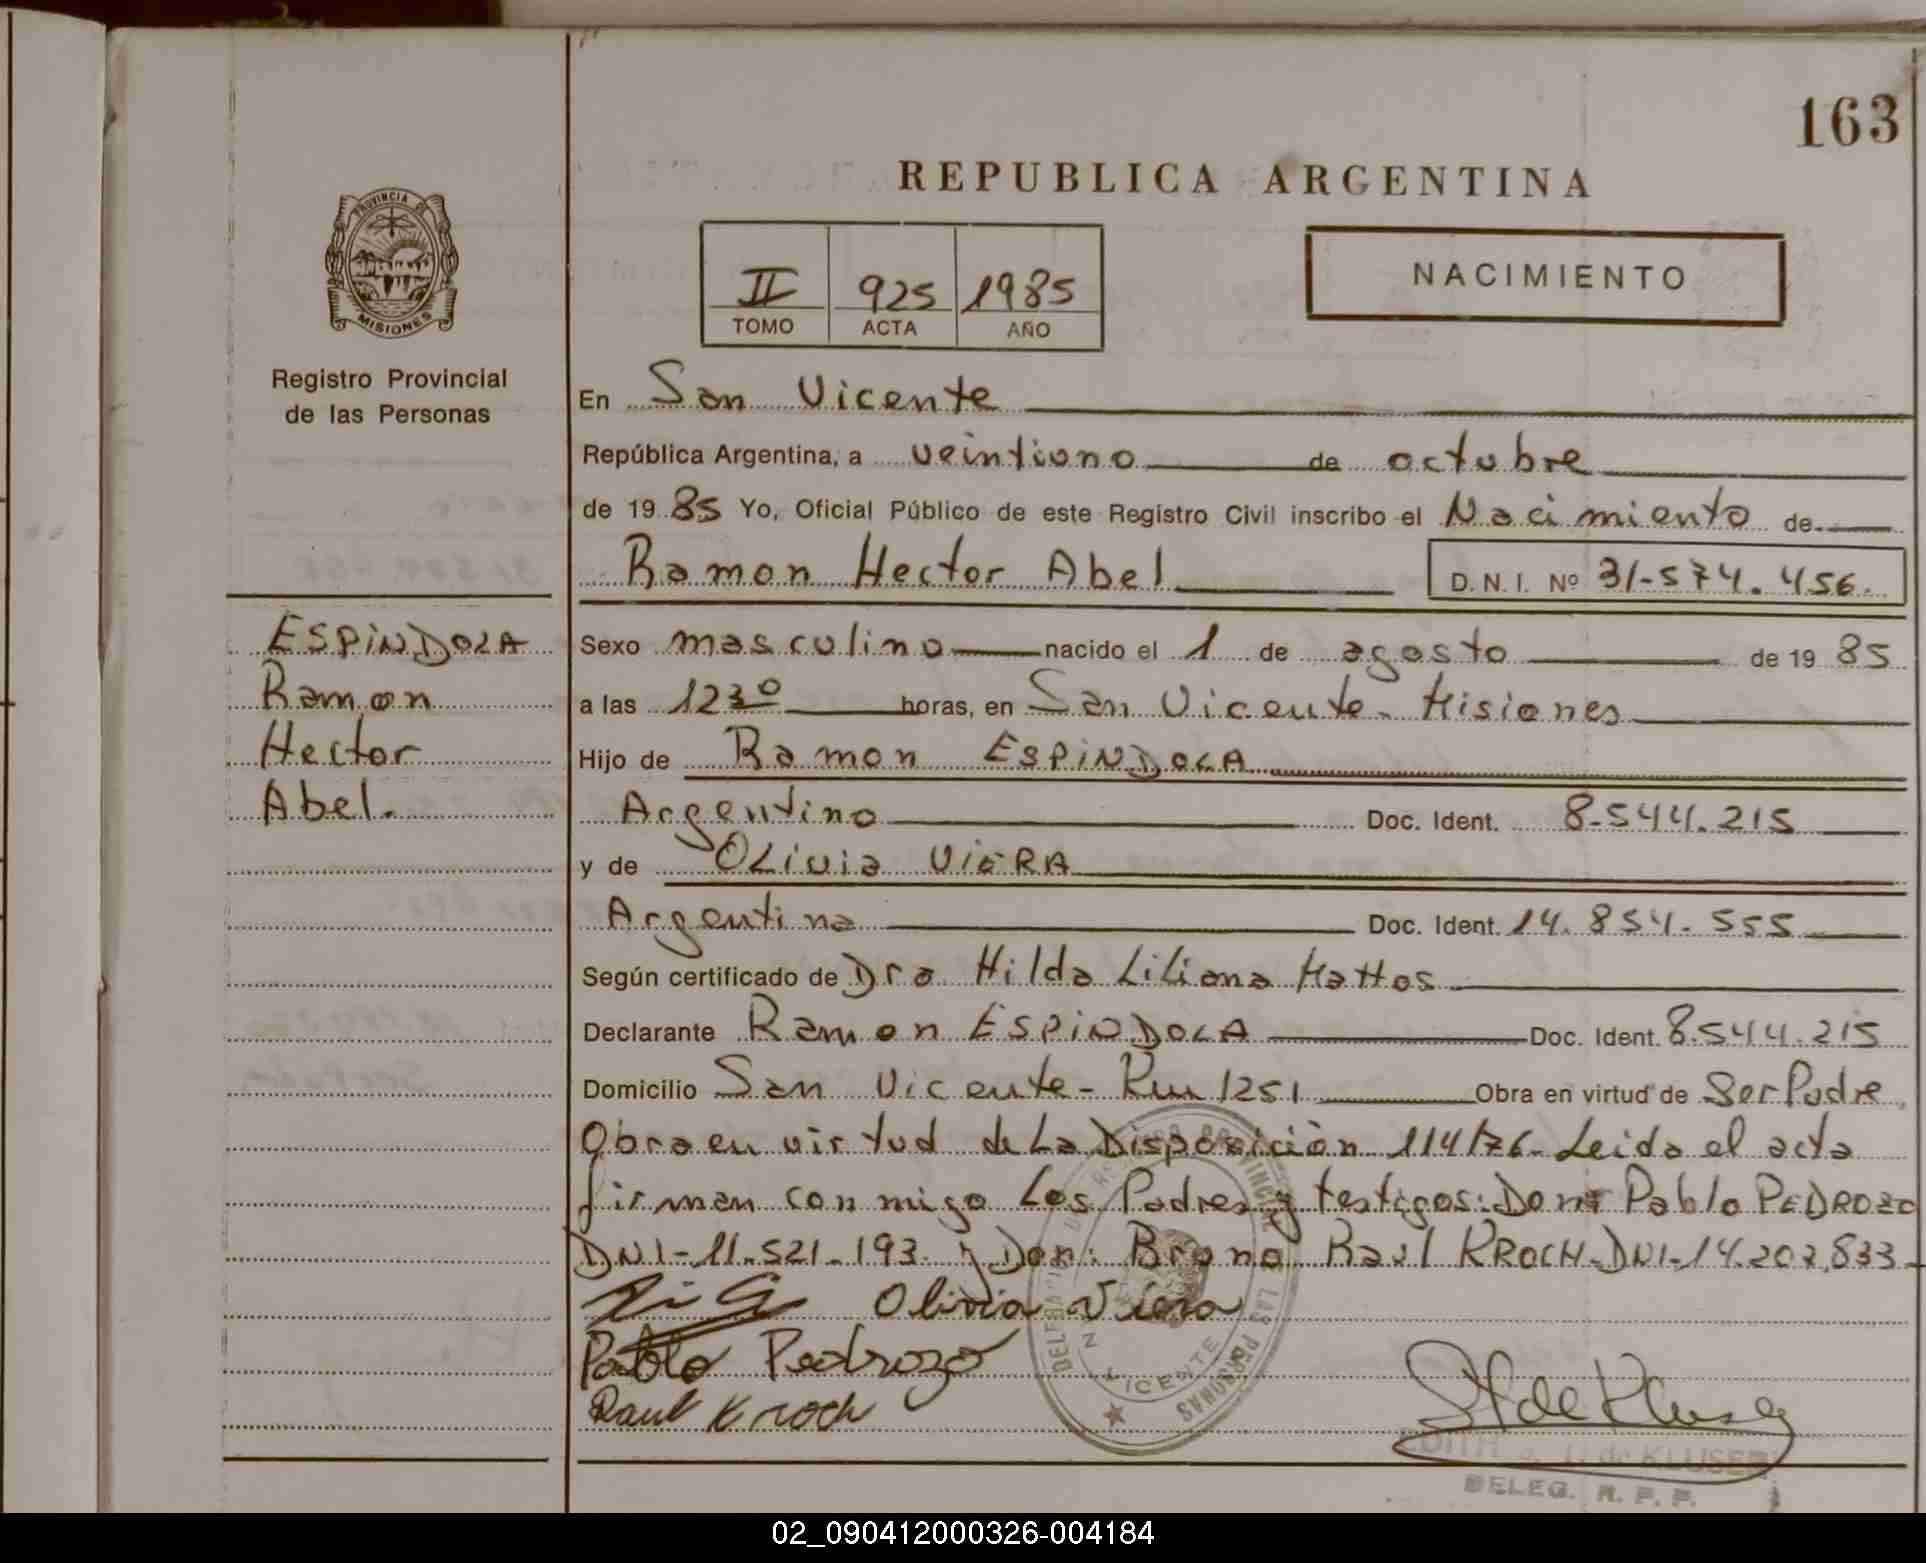 163
REPUBLICA ARGENTINA
PROVINCIA DE
MISIONES
Registro Provincial
de las Personas
II 925 1985
TOMO ACTA AÑO
NACIMIENTO
En San Vicente
República Argentina, a veintiuno de octubre
de 19 85 Yo, Oficial Público de este Registro Civil inscribo el Nacimiento de
Ramon Hector Abel D.N.I. Nº 31-574.456.
ESPINDOLA
Ramon
Hector
Abel.
Sexo masculino nacido el 1 de agosto de 19 85
a las 12 30 horas, en San Vicente - Misiones
Hijo de Ramon ESPINDOLA
Argentino Doc. Ident. 8-544.215
y de OLivia ViERA
Argentina Doc. Ident. 14.854.555
Según certificado de Dra Hilda Liliana Mattos
Declarante Ramon ESPINDOLA Doc. Ident. 8.544.215
Domicilio San Vicente - Km 1251 Obra en virtud de Ser Padre
Obra en virtud de La Disposición 114/76- Leida el acta
firman conmigo Los Padres y testigos: Don Pablo PEDROZO
DNI-11-521-193. y Don: Bruno Raul KROCH-DNI-14.207.833-
Olivia Viera
Pablo Pedrozo
Raul Kroch
DELEGACION VICENTE LAS PERSONAS
EDITH de KLUSER
DELEG. R. P. P.
02_090412000326-004184